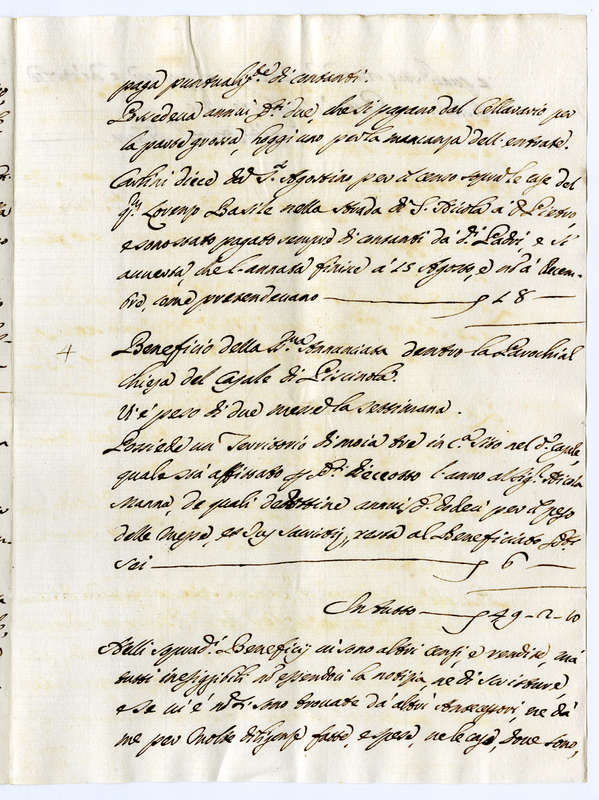 paga puntualm.te di contanti.
Possedeva annui d.ti due, che si pagano dal Cellarario per
la parte grossa, hoggi uno per la mancanza dell'entrate.
Carlini diece da S. Agostino per il censo sopra le case del
q.m Lorenzo Basile nella strada di S. Nicola à D. Pietro,
e sono stato pagato sempre di contanti da d.i Padri, e si
avverta, che l'annata finisce à 15 Agosto, e nò à Decem-
bre, come pretendevano 18
4 Beneficio della SS.ma Annunciata dentro la Parochial
chiesa del Casale di Piscinola.
Vi è peso di due messe la settimana.
Possiede un Territorio di moia tre in c.a sito nel d.o Casale,
quale stà affittato d.ti dieceotto l'anno al Sig.r Nicola
Manna, de quali annui d.ti dodeci per il peso
delle Messe, et resta al Beneficiato
sei 6
In tutto 49-2-10
Nelli squad.i Beneficij vi sono altri censi, e rendite, mà
tutti inesiggibili nò essendovi la notizia, ne di scritture,
e se vi è nò si sono trovate dà altri Antecessori, ne dà
me per molte diligenze fatte, e spese, ne le case, dove sono,